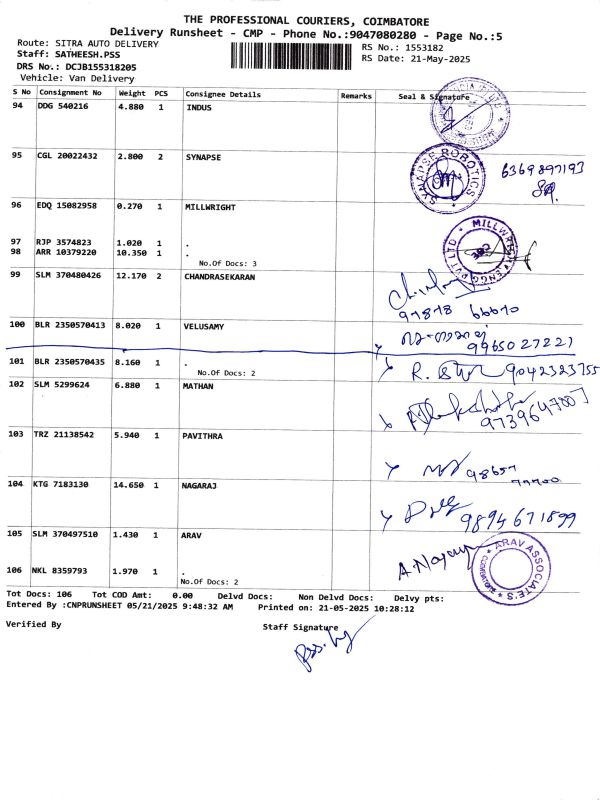 THE PROFESSIONAL COURIERS, COIMBATORE
Delivery Runsheet - CMP - Phone No.:9047080280 - Page No.:5
Route: SITRA AUTO DELIVERY
RS No.: 1553182
Staff: SATHEESH.PSS
RS Date: 21-May-2025
DRS No.: DCJB155318205
Vehicle: Van Delivery
S No Consignment No Weight PCS Consignee Details Remarks Seal & Signature
94 DDG 540216 4.880 1 INDUS
95 CGL 20022432 2.800 2 SYNAPSE
SYNAPSE ROBOTICS
6369897193
96 EDQ 15082958 0.270 1 MILLWRIGHT
MILLWRIGHT ENGG PVT LTD
97 RJP 3574823 1.020 1 .
98 ARR 10379220 10.350 1 .
No.Of Docs: 3
99 SLM 370480426 12.170 2 CHANDRASEKARAN
97878 66670
100 BLR 2350570413 8.020 1 VELUSAMY
9965027221
101 BLR 2350570435 8.160 1 .
No.Of Docs: 2
9042323755
102 SLM 5299624 6.880 1 MATHAN
103 TRZ 21138542 5.940 1 PAVITHRA
98657
104 KTG 7183130 14.650 1 NAGARAJ
9894671899
105 SLM 370497510 1.430 1 ARAV
ARAV ASSOCIATE'S
COIMBATORE
106 NKL 8359793 1.970 1 .
No.Of Docs: 2
Tot Docs: 106 Tot COD Amt: 0.00 Delvd Docs: Non Delvd Docs: Delvy pts:
Entered By :CNPRUNSHEET 05/21/2025 9:48:32 AM Printed on: 21-05-2025 10:28:12
Verified By Staff Signature